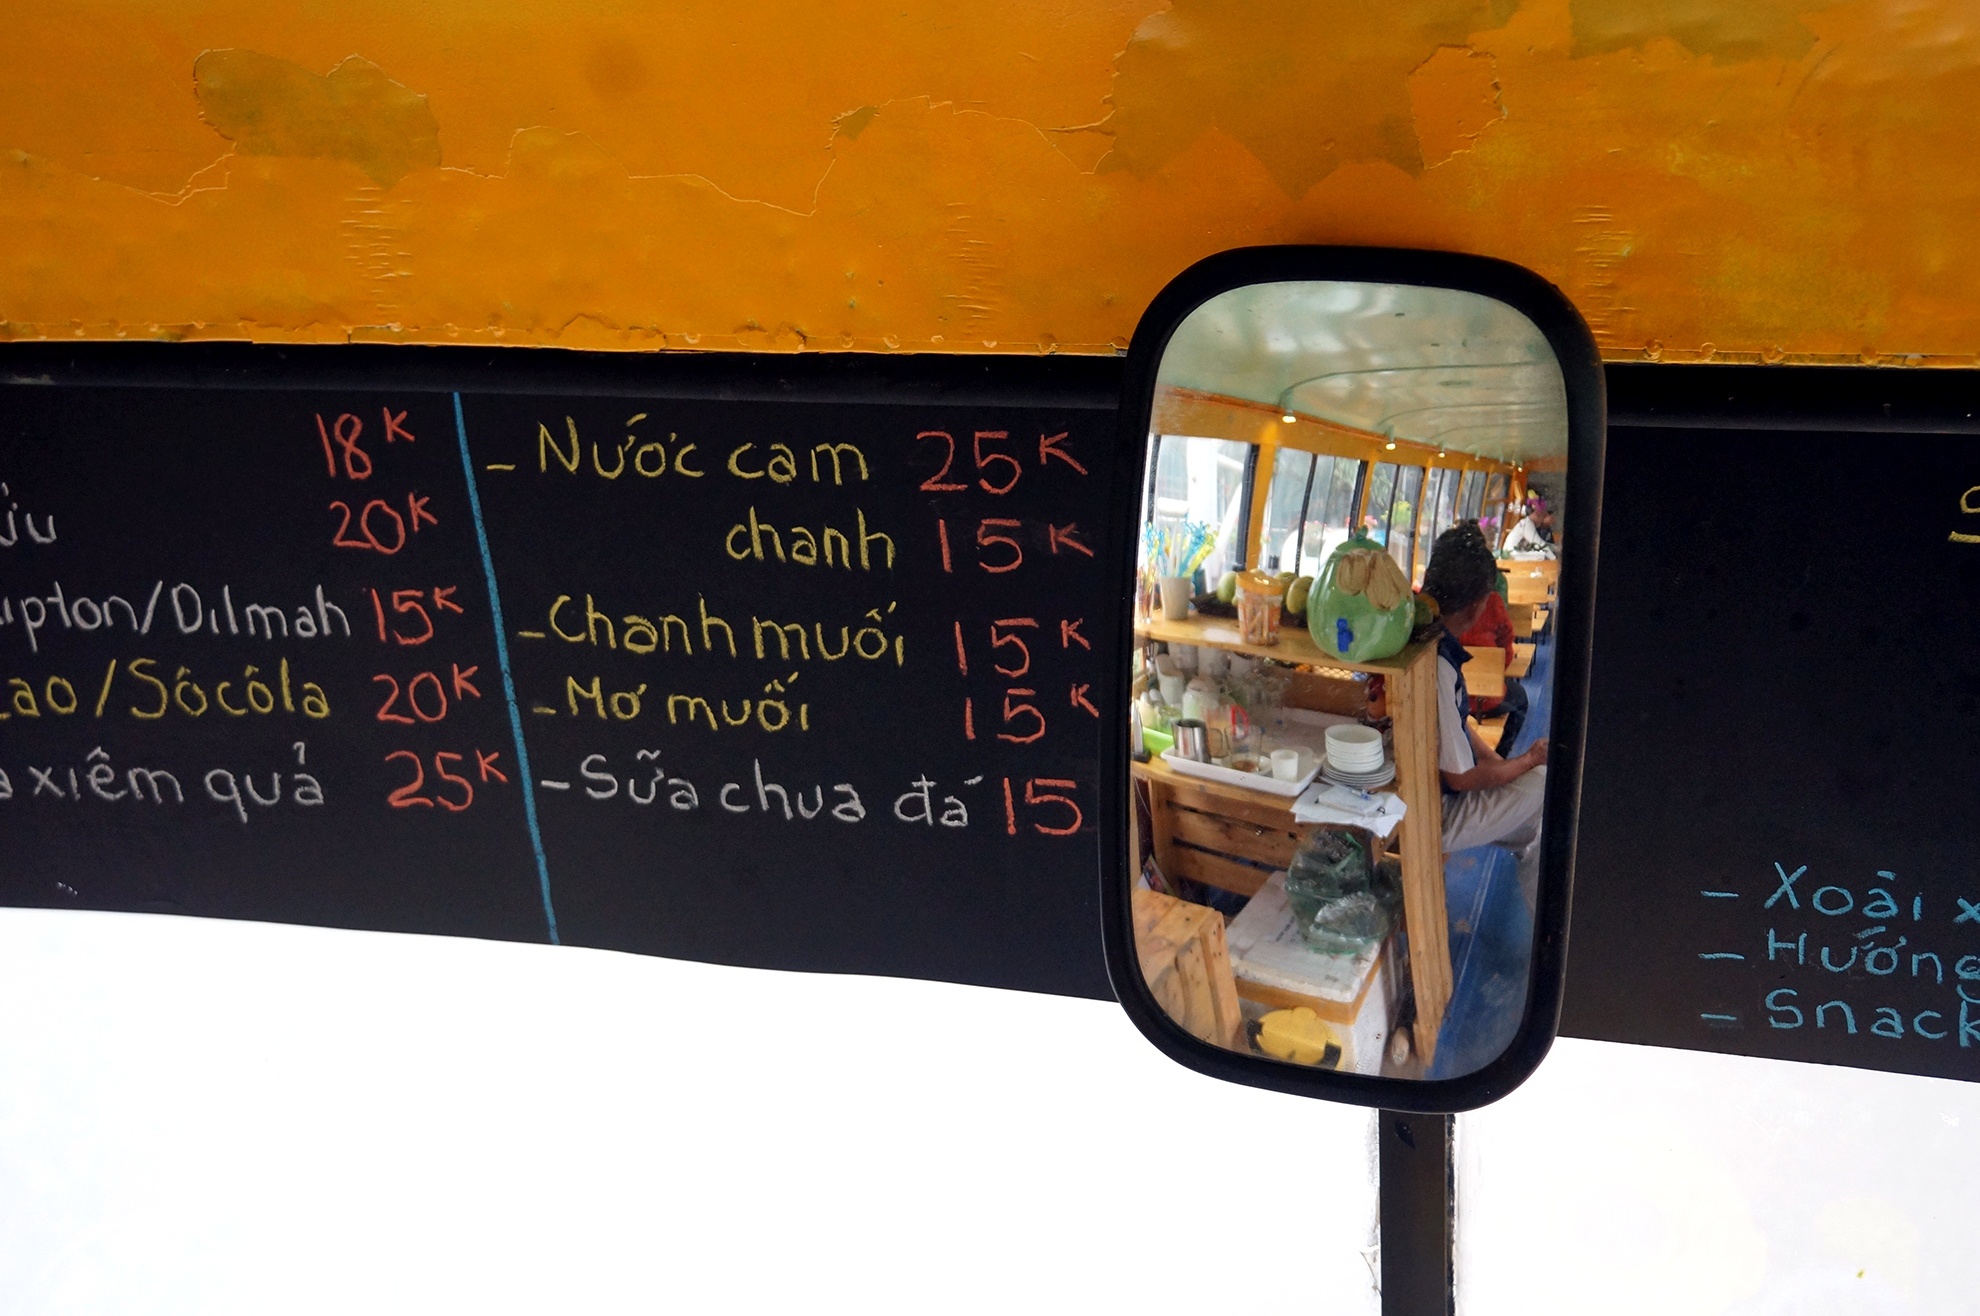 18K
20K
Lipton/Dilmah 15K
cao/Sôcôla 20K
xiêm quả 25K
- Nước cam 25K
chanh 15K
- Chanh muối 15K
- Mơ muối 15K
- Sữa chua đá 15
- Xoài
- Hướng
- Snack